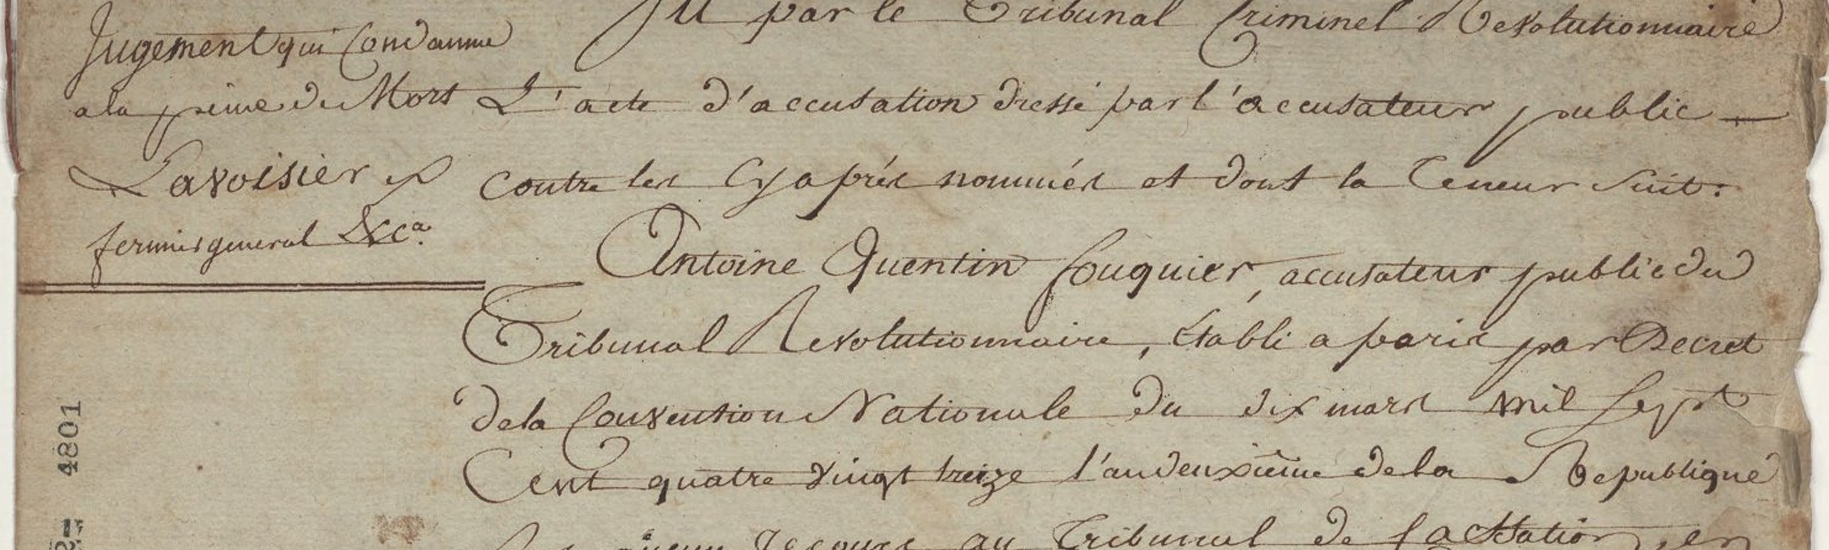 Jugement qui Condamne
a la peine de Mort
Lavoisier ex
fermier general &Ca.
Vu par le Tribunal Criminel Revolutionnaire
L'acte d'accusation dressé par l'accusateur public
contre les Cy après nommés et dont la Teneur Suit:
Antoine Quentin fouquier, accusateur public du
Tribunal Revolutionnaire, établi a paris par Decret
de la Convention Nationale du dix mars mil Sept
Cent quatre vingt treize l'an deuxième de la Republique
Recours au Tribunal de Cassation, en
4801